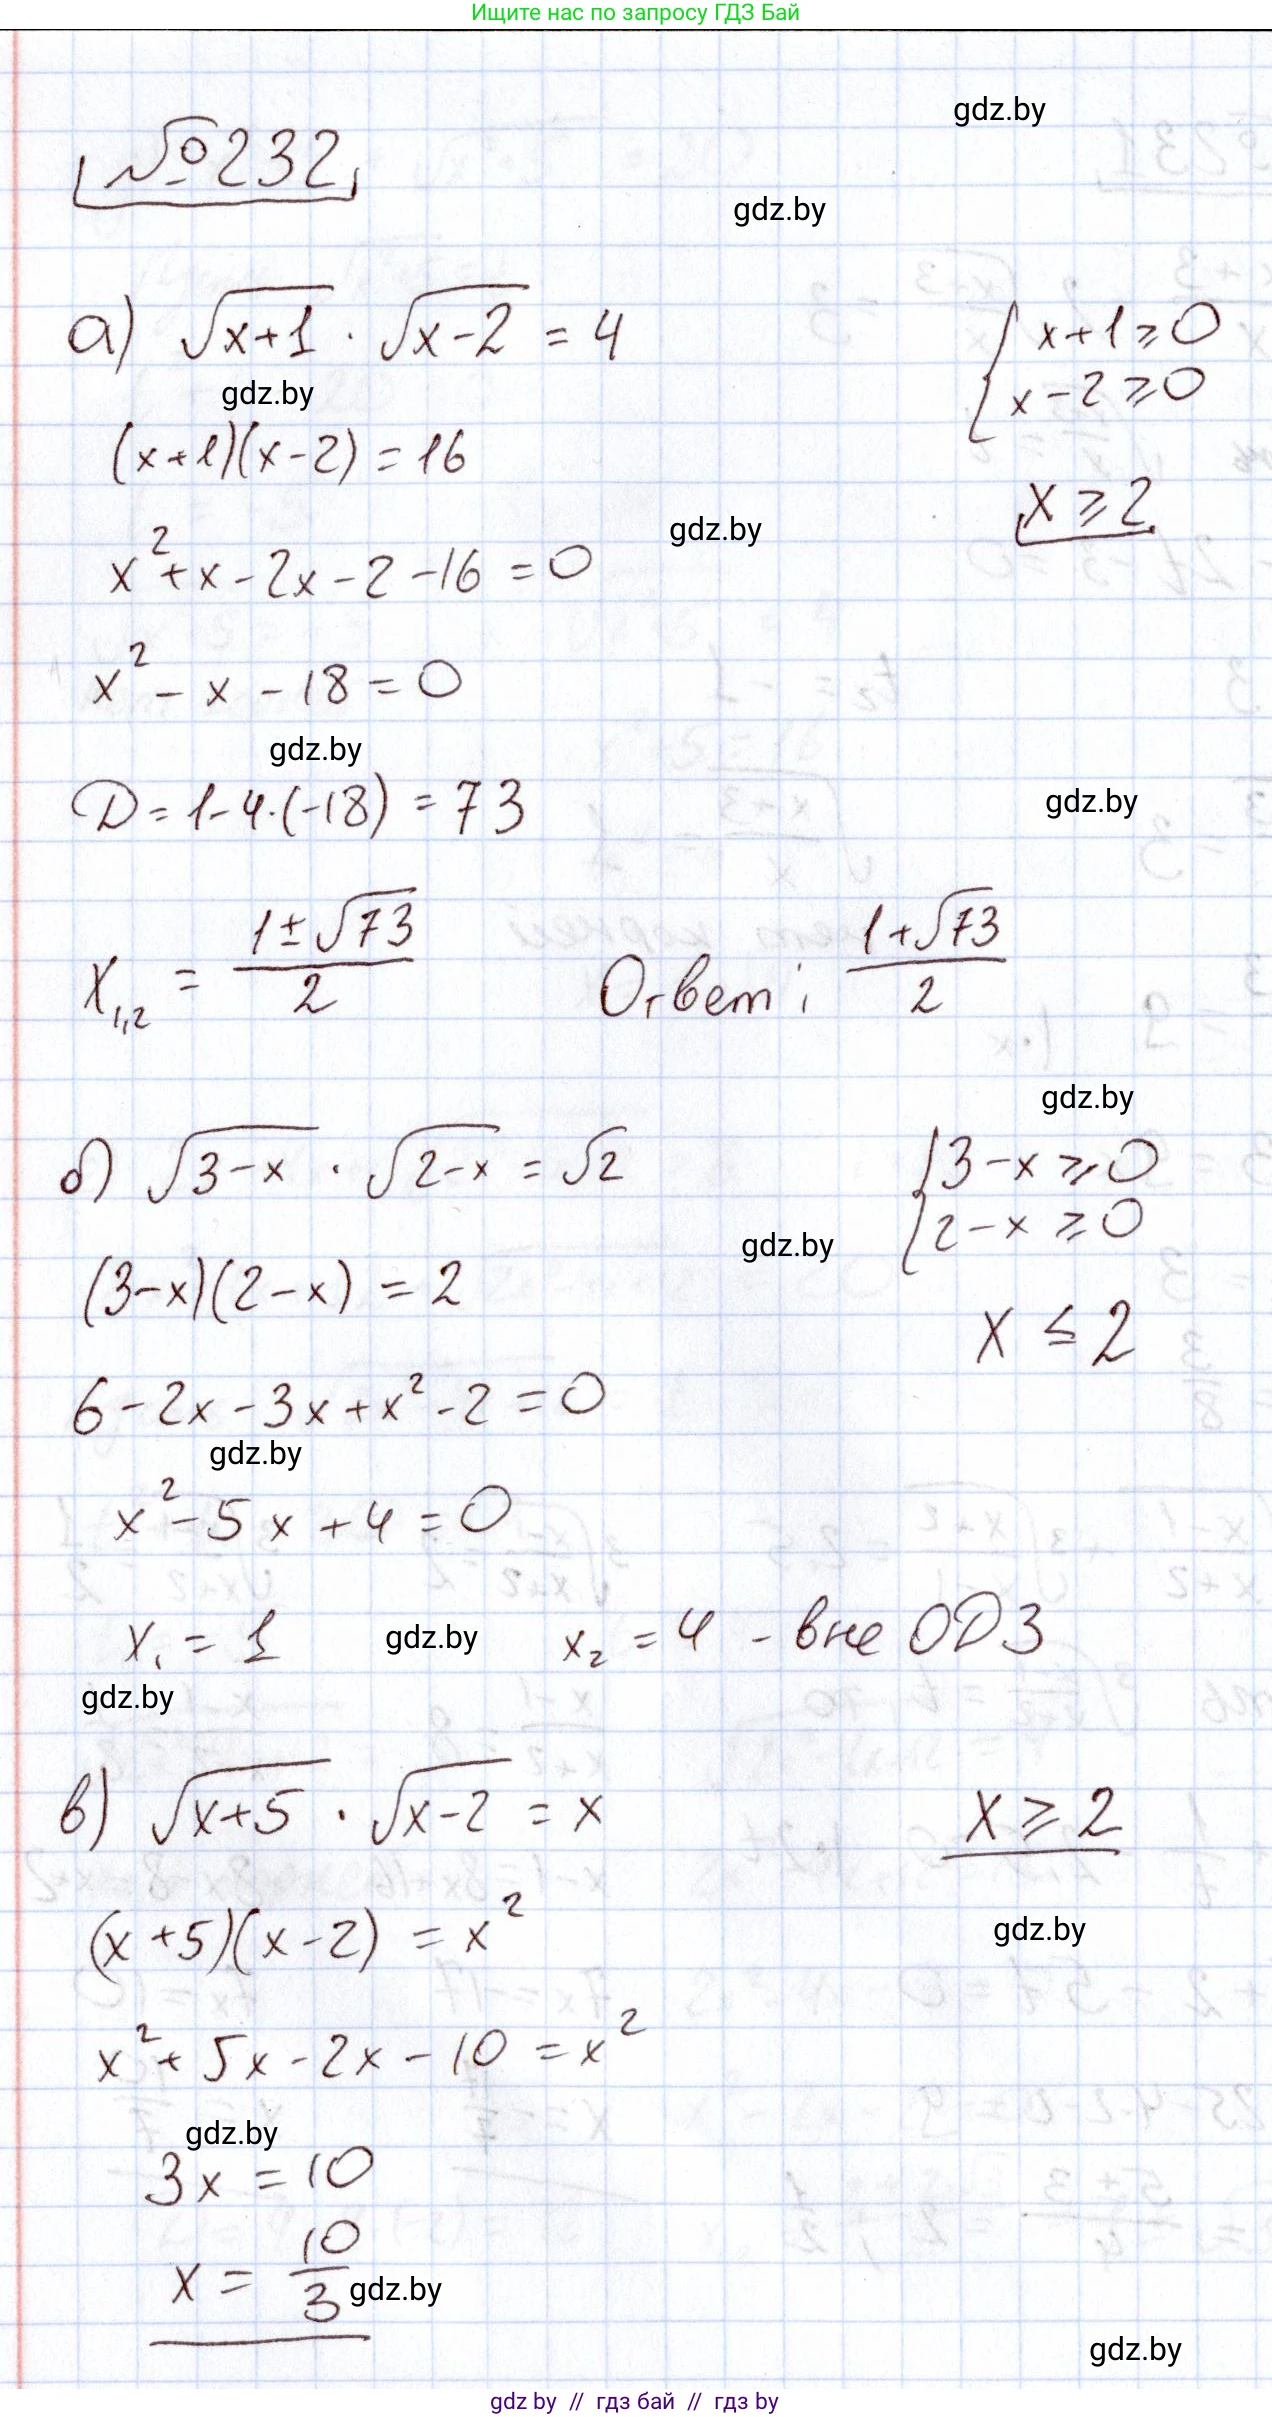 Ищите нас по запросу ГДЗ Бай
gdz.by
№232
gdz.by
а) √(x+1) · √(x-2) = 4
{ x+1 ⩾ 0
x-2 ⩾ 0
gdz.by
(x+1)(x-2) = 16
x ⩾ 2
gdz.by
x² + x - 2x - 2 - 16 = 0
x² - x - 18 = 0
gdz.by
D = 1 - 4·(-18) = 73
gdz.by
x₁,₂ = (1 ± √73)/2
Ответ: (1 + √73)/2
gdz.by
б) √(3-x) · √(2-x) = √2
{ 3-x ⩾ 0
2-x ⩾ 0
gdz.by
(3-x)(2-x) = 2
x ≤ 2
6 - 2x - 3x + x² - 2 = 0
gdz.by
x² - 5x + 4 = 0
x₁ = 1
gdz.by
x₂ = 4 - вне ОДЗ
gdz.by
в) √(x+5) · √(x-2) = x
x ⩾ 2
gdz.by
(x+5)(x-2) = x²
x² + 5x - 2x - 10 = x²
gdz.by
3x = 10
x = 10/3
gdz.by
gdz.by
gdz by // гдз бай // гдз by